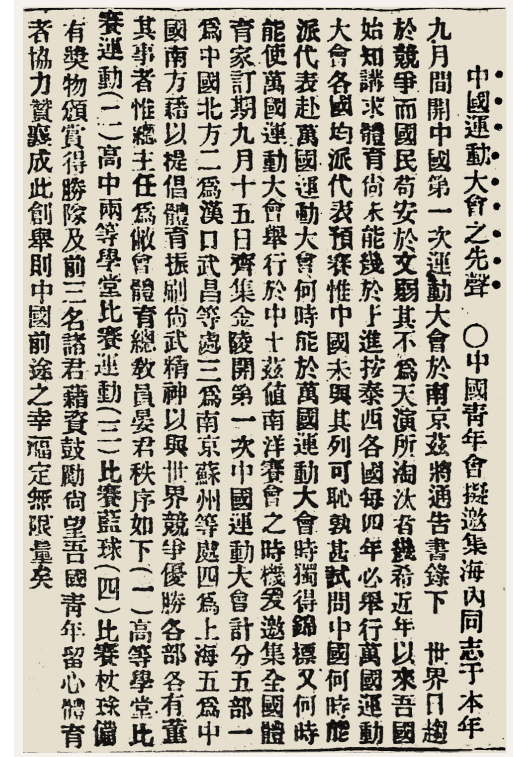 中國運動大會之先聲　○中國青年會擬邀集海內同志于本年
九月間開中國第一次運動大會於南京茲將通告書錄下　世界日趨
於競爭而國民苟安於文弱其不為天演所淘汰者幾希近年以來吾國
始知講求體育尙未能幾於上進按泰西各國每四年必舉行萬國運動
大會各國均派代表預賽惟中國未與其列可恥孰甚試問中國何時能
派代表赴萬國運動大會何時能於萬國運動大會時獨得錦標又何時
能使萬國運動大會舉行於中土茲值南洋賽會之時機爰邀集全國體
育家訂期九月十五日齊集金陵開第一次中國運動大會計分五部一
為中國北方二為漢口武昌等處三為南京蘇州等處四為上海五為中
國南方藉以提倡體育振刷尙武精神以與世界競爭優勝各部各有董
其事者惟總主任為敝會體育總教員晏君秩序如下(一)高等學堂比
賽運動(二)高中兩等學堂比賽運動(三)比賽藍球(四)比賽杖球備
有獎物頒賞得勝隊及前三名諸君藉資鼓勵尙望吾國青年留心體育
者協力贊襄成此創舉則中國前途之幸福定無限量矣